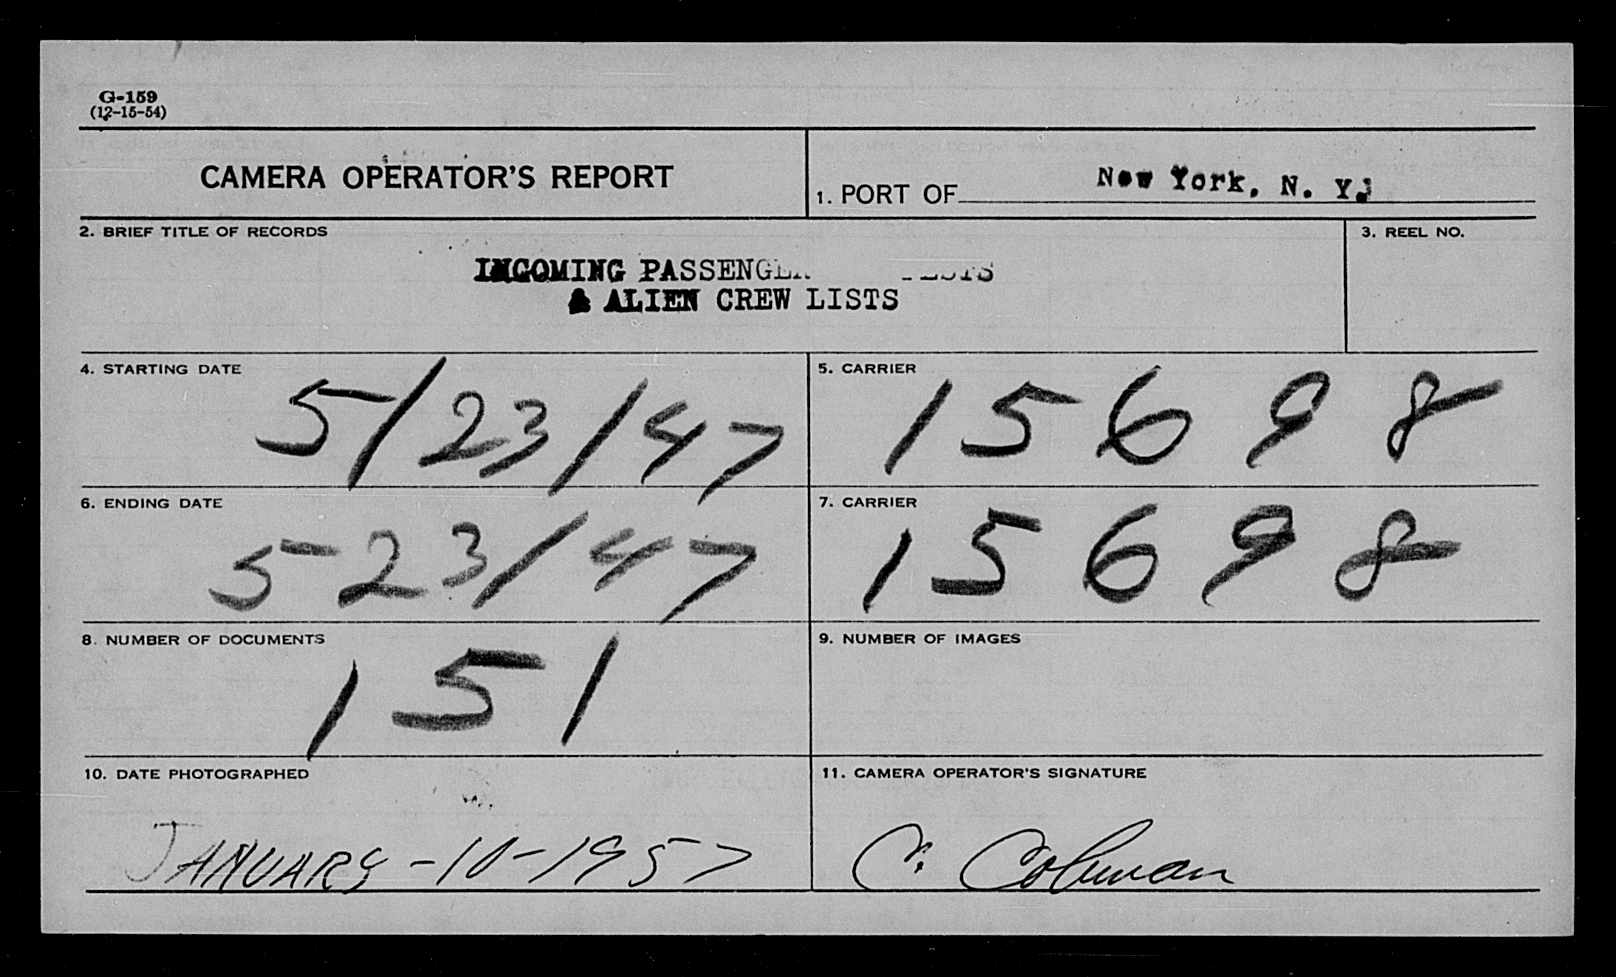 G-159
(12-15-54)
CAMERA OPERATOR'S REPORT
1. PORT OF New York, N. Y.
2. BRIEF TITLE OF RECORDS
3. REEL NO.
INCOMING PASSENGER
& ALIEN CREW LISTS
4. STARTING DATE
5/23/47
5. CARRIER
15698
6. ENDING DATE
523/47
7. CARRIER
15698
8. NUMBER OF DOCUMENTS
151
9. NUMBER OF IMAGES
10. DATE PHOTOGRAPHED
JANUARY-10-1957
11. CAMERA OPERATOR'S SIGNATURE
C. Coleman